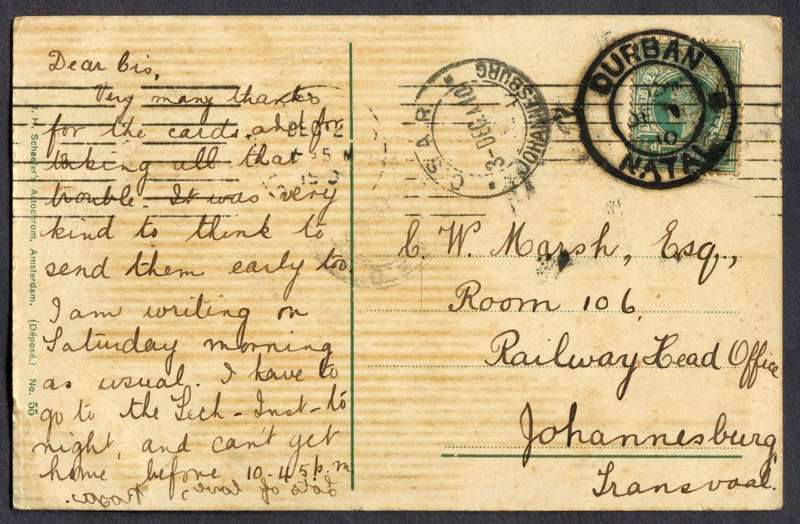 Dear Cis,
Very many thanks
for the cards, and for
taking all that
trouble. It was very
kind to think to
send them early too.
I am writing on
Saturday morning
as usual. I have to
go to the Tech-Inst-to
night, and can't get
home before 10-45 p.m
Lots of love,
C. W. Marsh, Esq.,
Room 106,
Railway Head Office
Johannesburg,
Transvaal.
DURBAN
NATAL
JOHANNESBURG
C.S.A.R.
3-DEC
H. Schaefer's Autochrom, Amsterdam. (Déposé.) No. 55